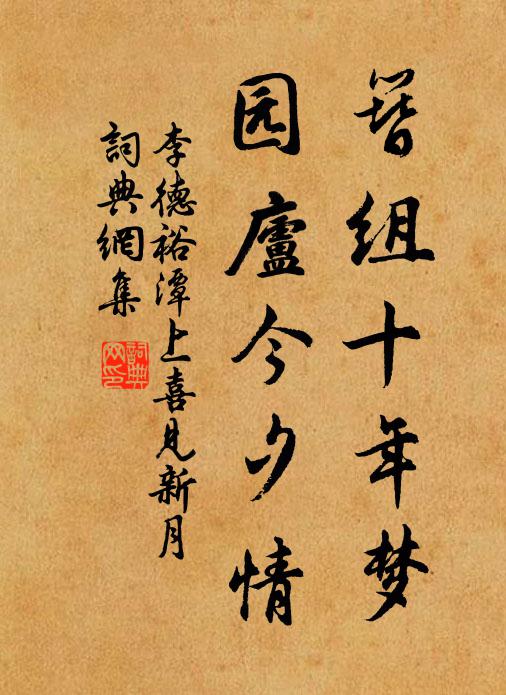 簪组十年梦
园廬今夕情
李德裕潭上喜见新月
詞典網集
詞典網印